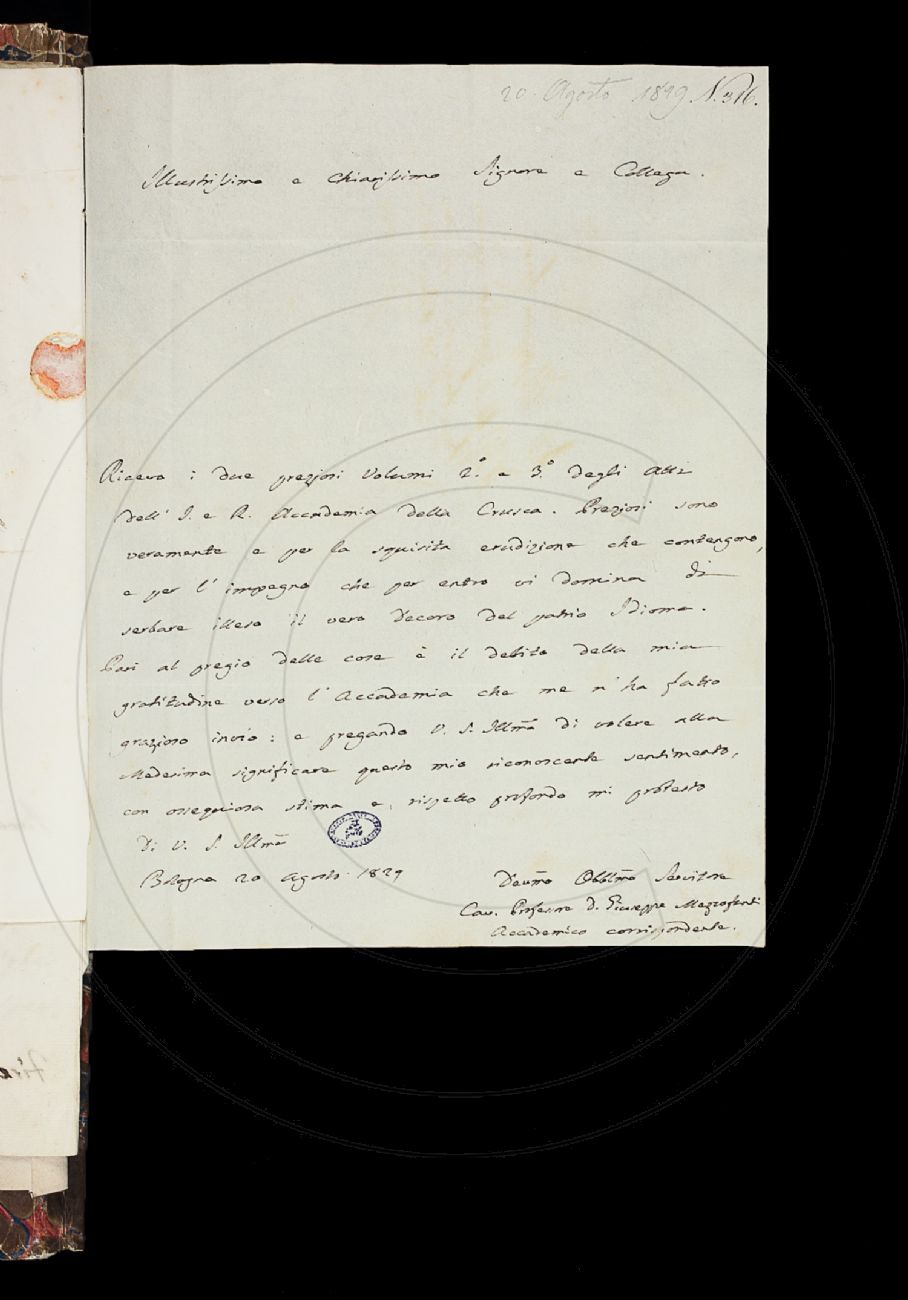 20. Agosto 1829 N. 316.
Illustrissimo e Chiarissimo Signore e Collega.
Ricevo i due preziosi Volumi 2.° e 3.° degli Atti
dell' I. e R. Accademia della Crusca. Preziosi sono
veramente e per la squisita erudizione che contengono,
e per l' impegno che per entro vi domina di
serbare illeso il vero decoro del patrio Idioma.
Pari al pregio delle cose è il debito della mia
gratitudine verso l' Accademia che me n' ha fatto
grazioso invio: e pregando V. S. Illma di volere alla
Medesima significare questo mio riconoscente sentimento,
con ossequiosa stima e rispetto profondo mi protesto
Di V. S. Illma
Bologna 20 Agosto 1829
Devmo Obblmo Servitore
Cav. Professore D. Giuseppe Mezzofanti
Accademico corrispondente.